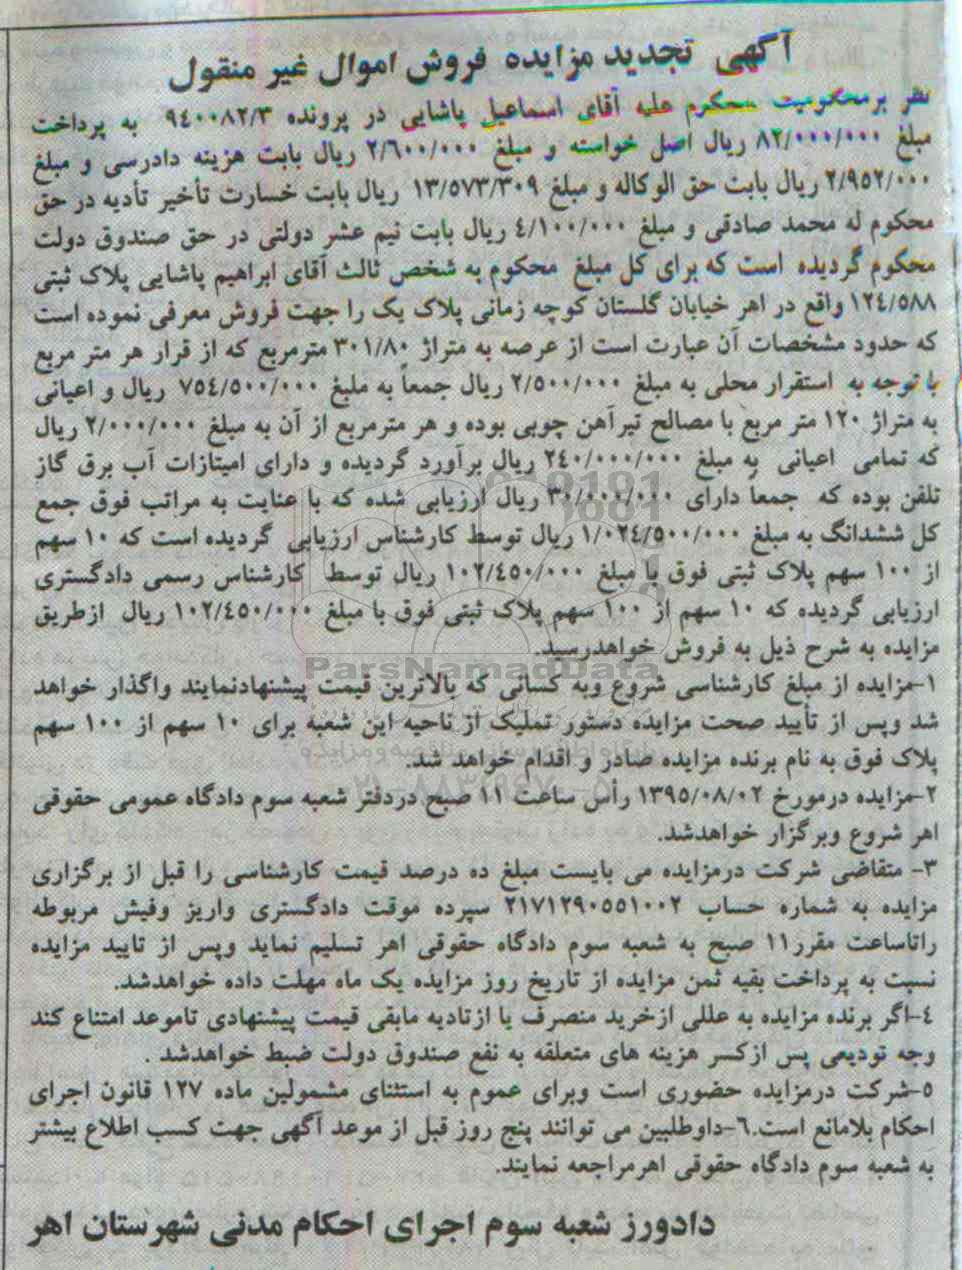 آگهی تجدید مزایده فروش اموال غیر منقول
نظر بر محکومیت محکوم علیه آقای اسماعیل پاشایی در پرونده ۹۴۰۰۸۲/۳ به پرداخت
مبلغ ۸۲/۰۰۰/۰۰۰ ریال اصل خواسته و مبلغ ۲/۶۰۰/۰۰۰ ریال بابت هزینه دادرسی و مبلغ
۲/۹۵۲/۰۰۰ ریال بابت حق الوکاله و مبلغ ۱۳/۵۷۳/۳۰۹ ریال بابت خسارت تأخیر تأدیه در حق
محکوم له محمد صادقی و مبلغ ۴/۱۰۰/۰۰۰ ریال بابت نیم عشر دولتی در حق صندوق دولت
محکوم گردیده است که برای کل مبلغ محکوم به شخص ثالث آقای ابراهیم پاشایی پلاک ثبتی
۱۲۴/۵۸۸ واقع در اهر خیابان گلستان کوچه زمانی پلاک یک را جهت فروش معرفی نموده است
که حدود مشخصات آن عبارت است از عرصه به متراژ ۳۰۱/۸۰ مترمربع که از قرار هر متر مربع
با توجه به استقرار محلی به مبلغ ۲/۵۰۰/۰۰۰ ریال جمعاً به ملبغ ۷۵۴/۵۰۰/۰۰۰ ریال و اعیانی
به متراژ ۱۲۰ متر مربع با مصالح تیرآهن چوبی بوده و هر مترمربع از آن به مبلغ ۲/۰۰۰/۰۰۰ ریال
که تمامی اعیانی به مبلغ ۲۴۰/۰۰۰/۰۰۰ ریال برآورد گردیده و دارای امیتازات آب برق گاز
تلفن بوده که جمعاً دارای ۳۰/۰۰۰/۰۰۰ ریال ارزیابی شده که با عنایت به مراتب فوق جمع
کل ششدانگ به مبلغ ۱/۰۲۴/۵۰۰/۰۰۰ ریال توسط کارشناس ارزیابی گردیده است که ۱۰ سهم
از ۱۰۰ سهم پلاک ثبتی فوق با مبلغ ۱۰۲/۴۵۰/۰۰۰ ریال توسط کارشناس رسمی دادگستری
ارزیابی گردیده که ۱۰ سهم از ۱۰۰ سهم پلاک ثبتی فوق با مبلغ ۱۰۲/۴۵۰/۰۰۰ ریال ازطریق
مزایده به شرح ذیل به فروش خواهدرسید.
ParsNamadData
۱-مزایده از مبلغ کارشناسی شروع وبه کسانی که بالاترین قیمت پیشنهادنمایند واگذار خواهد
شد وپس از تأیید صحت مزایده دستور تملیک از ناحیه این شعبه برای ۱۰ سهم از ۱۰۰ سهم
پلاک فوق به نام برنده مزایده صادر و اقدام خواهد شد.
۲-مزایده درمورخ ۱۳۹۵/۰۸/۰۲ رأس ساعت ۱۱ صبح دردفتر شعبه سوم دادگاه عمومی حقوقی
اهر شروع وبرگزار خواهدشد.
۳- متقاضی شرکت درمزایده می بایست مبلغ ده درصد قیمت کارشناسی را قبل از برگزاری
مزایده به شماره حساب ۲۱۷۱۲۹۰۵۵۱۰۰۲ سپرده موقت دادگستری واریز وفیش مربوطه
راتاساعت مقرر۱۱ صبح به شعبه سوم دادگاه حقوقی اهر تسلیم نماید وپس از تایید مزایده
نسبت به پرداخت بقیه ثمن مزایده از تاریخ روز مزایده یک ماه مهلت داده خواهدشد.
۴-اگر برنده مزایده به عللی ازخرید منصرف یا ازتادیه مابقی قیمت پیشنهادی تاموعد امتناع کند
وجه تودیعی پس ازکسر هزینه های متعلقه به نفع صندوق دولت ضبط خواهدشد .
۵-شرکت درمزایده حضوری است وبرای عموم به استثنای مشمولین ماده ۱۲۷ قانون اجرای
احکام بلامانع است.۶-داوطلبین می توانند پنج روز قبل از موعد آگهی جهت کسب اطلاع بیشتر
به شعبه سوم دادگاه حقوقی اهرمراجعه نمایند.
دادورز شعبه سوم اجرای احکام مدنی شهرستان اهر